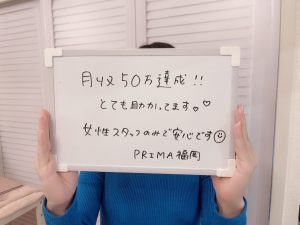 月収50万達成!!
とても助かってます。♡♡
女性スタッフのみで安心です☺
PRIMA福岡